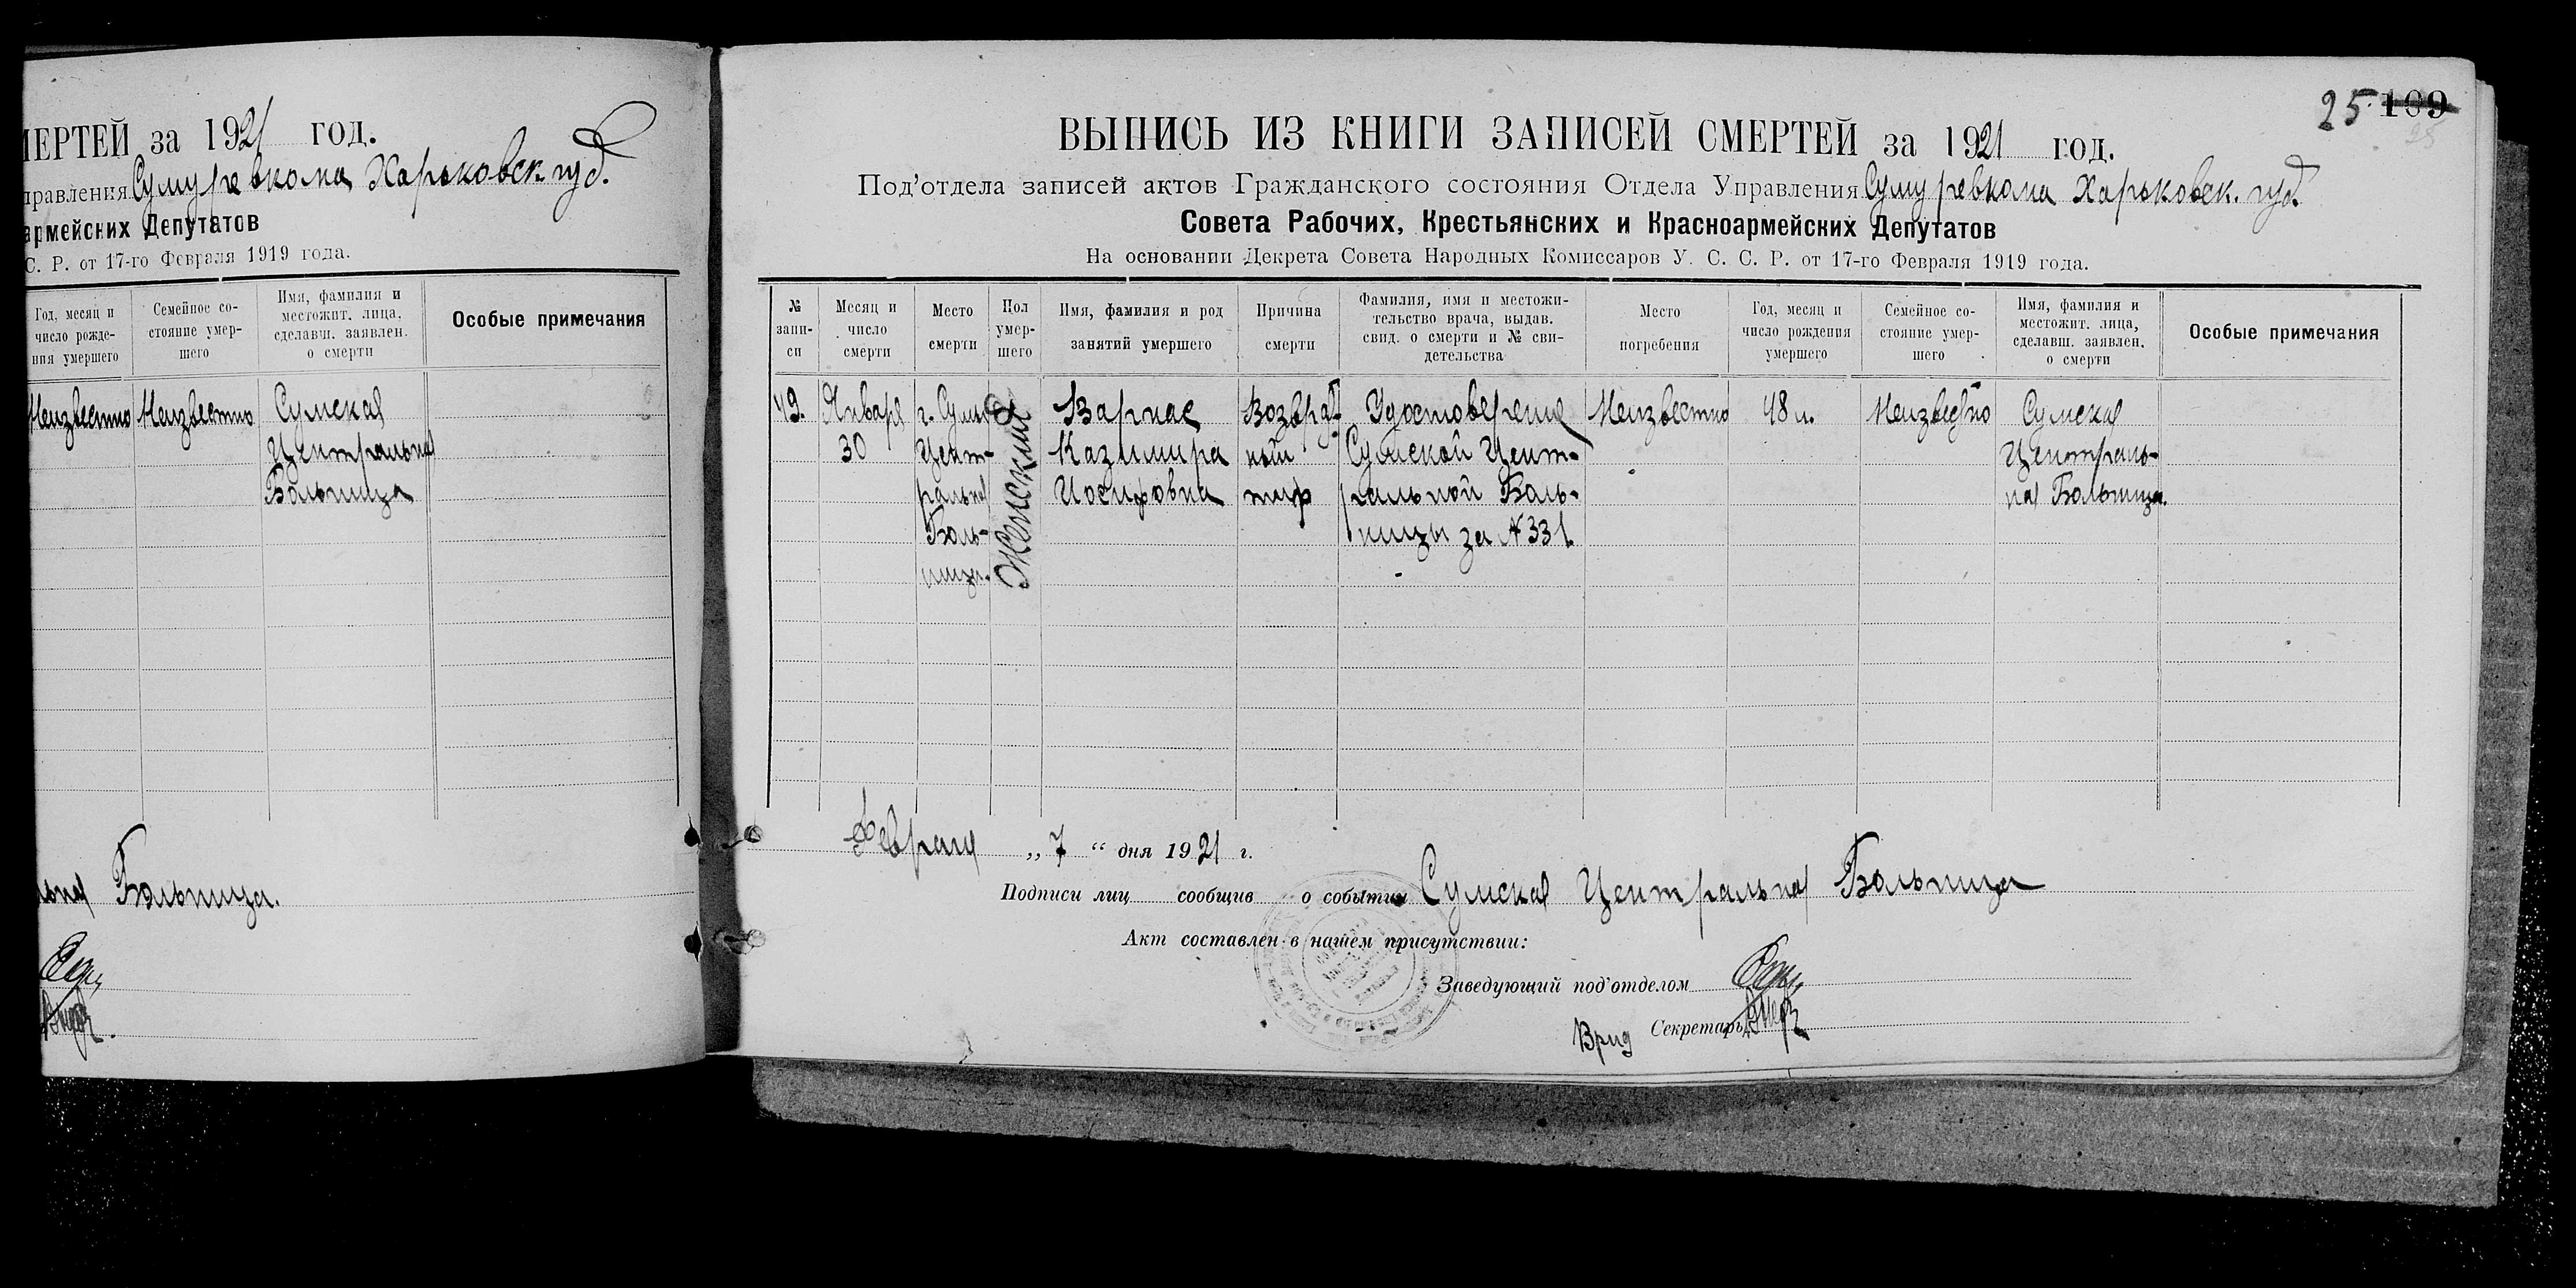 МЕРТЕЙ за 1921 год.
правления Сумуревкома Харьковск. губ.
армейских Депутатов
С. Р. от 17-го Февраля 1919 года.
Год, месяц и число рожде- ния умершего
Семейное со- стояние умер- шего
Имя, фамилия и местожит. лица, сделавш. заявлен. о смерти
Особые примечания
Неизвестно Неизвестно Сумская
Центральная
Больница
ьная Больница.
25 109
25
ВЫПИСЬ ИЗ КНИГИ ЗАПИСЕЙ СМЕРТЕЙ за 1921 год.
Под'отдела записей актов Гражданского состояния Отдела Управления Сумуревкома Харьковск. губ.
Совета Рабочих, Крестьянских и Красноармейских Депутатов
На основании Декрета Совета Народных Комиссаров У. С. С. Р. от 17-го Февраля 1919 года.
№ запи- си
Месяц и число смерти
Место смерти
Пол умер- шего
Имя, фамилия и род занятий умершего
Причина смерти
Фамилия, имя и местожи- тельство врача, выдав. свид. о смерти и № сви- детельства
Место погребения
Год, месяц и число рождения умершего
Семейное со- стояние умер- шего
Имя, фамилия и местожит. лица, сделавш. заявлен. о смерти
Особые примечания
49. Января г. Сумы Женский Варнас Возврат- Удостоверение Неизвестно 48 л. Неизвестно Сумская
30 Цент- Казимира ный Сумской Цент- Централь-
ральная Иосифовна тиф ральной Боль- ная Больница.
Боль- ницы за № 331
ница.
Февраля „ 7 “ дня 1921 г.
Подписи лиц сообщив о событии Сумская Центральная Больница
Акт составлен в нашем присутствии:
Заведующий под'отделом
Врид Секретарь